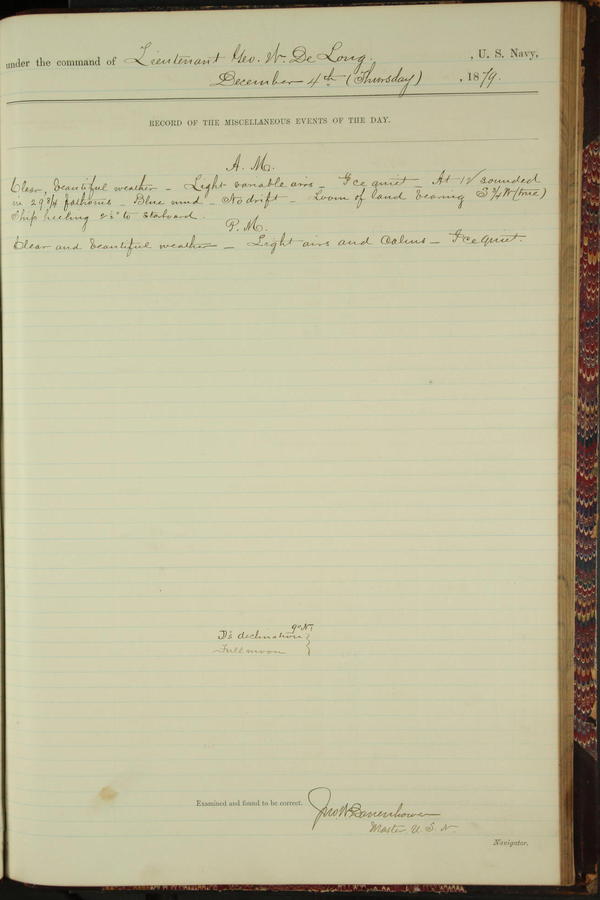 under the command of Lieutenant Geo. W. De Long. , U. S. Navy,
December 4th (Thursday) , 1879.
RECORD OF THE MISCELLANEOUS EVENTS OF THE DAY.
A. M.
Clear, beautiful weather – Light variable airs – Ice quiet – At 12 sounded
in 29 3/4 fathoms – Blue mud – No drift – Loom of land bearing S 3/4 W (true)
Ship heeling to starboard.
P. M.
Clear and beautiful weather – Light airs and calms – Ice quiet.
declination
Full moon
Examined and found to be correct.
Jno W Danenhower
Master, U. S. N.
Navigator.